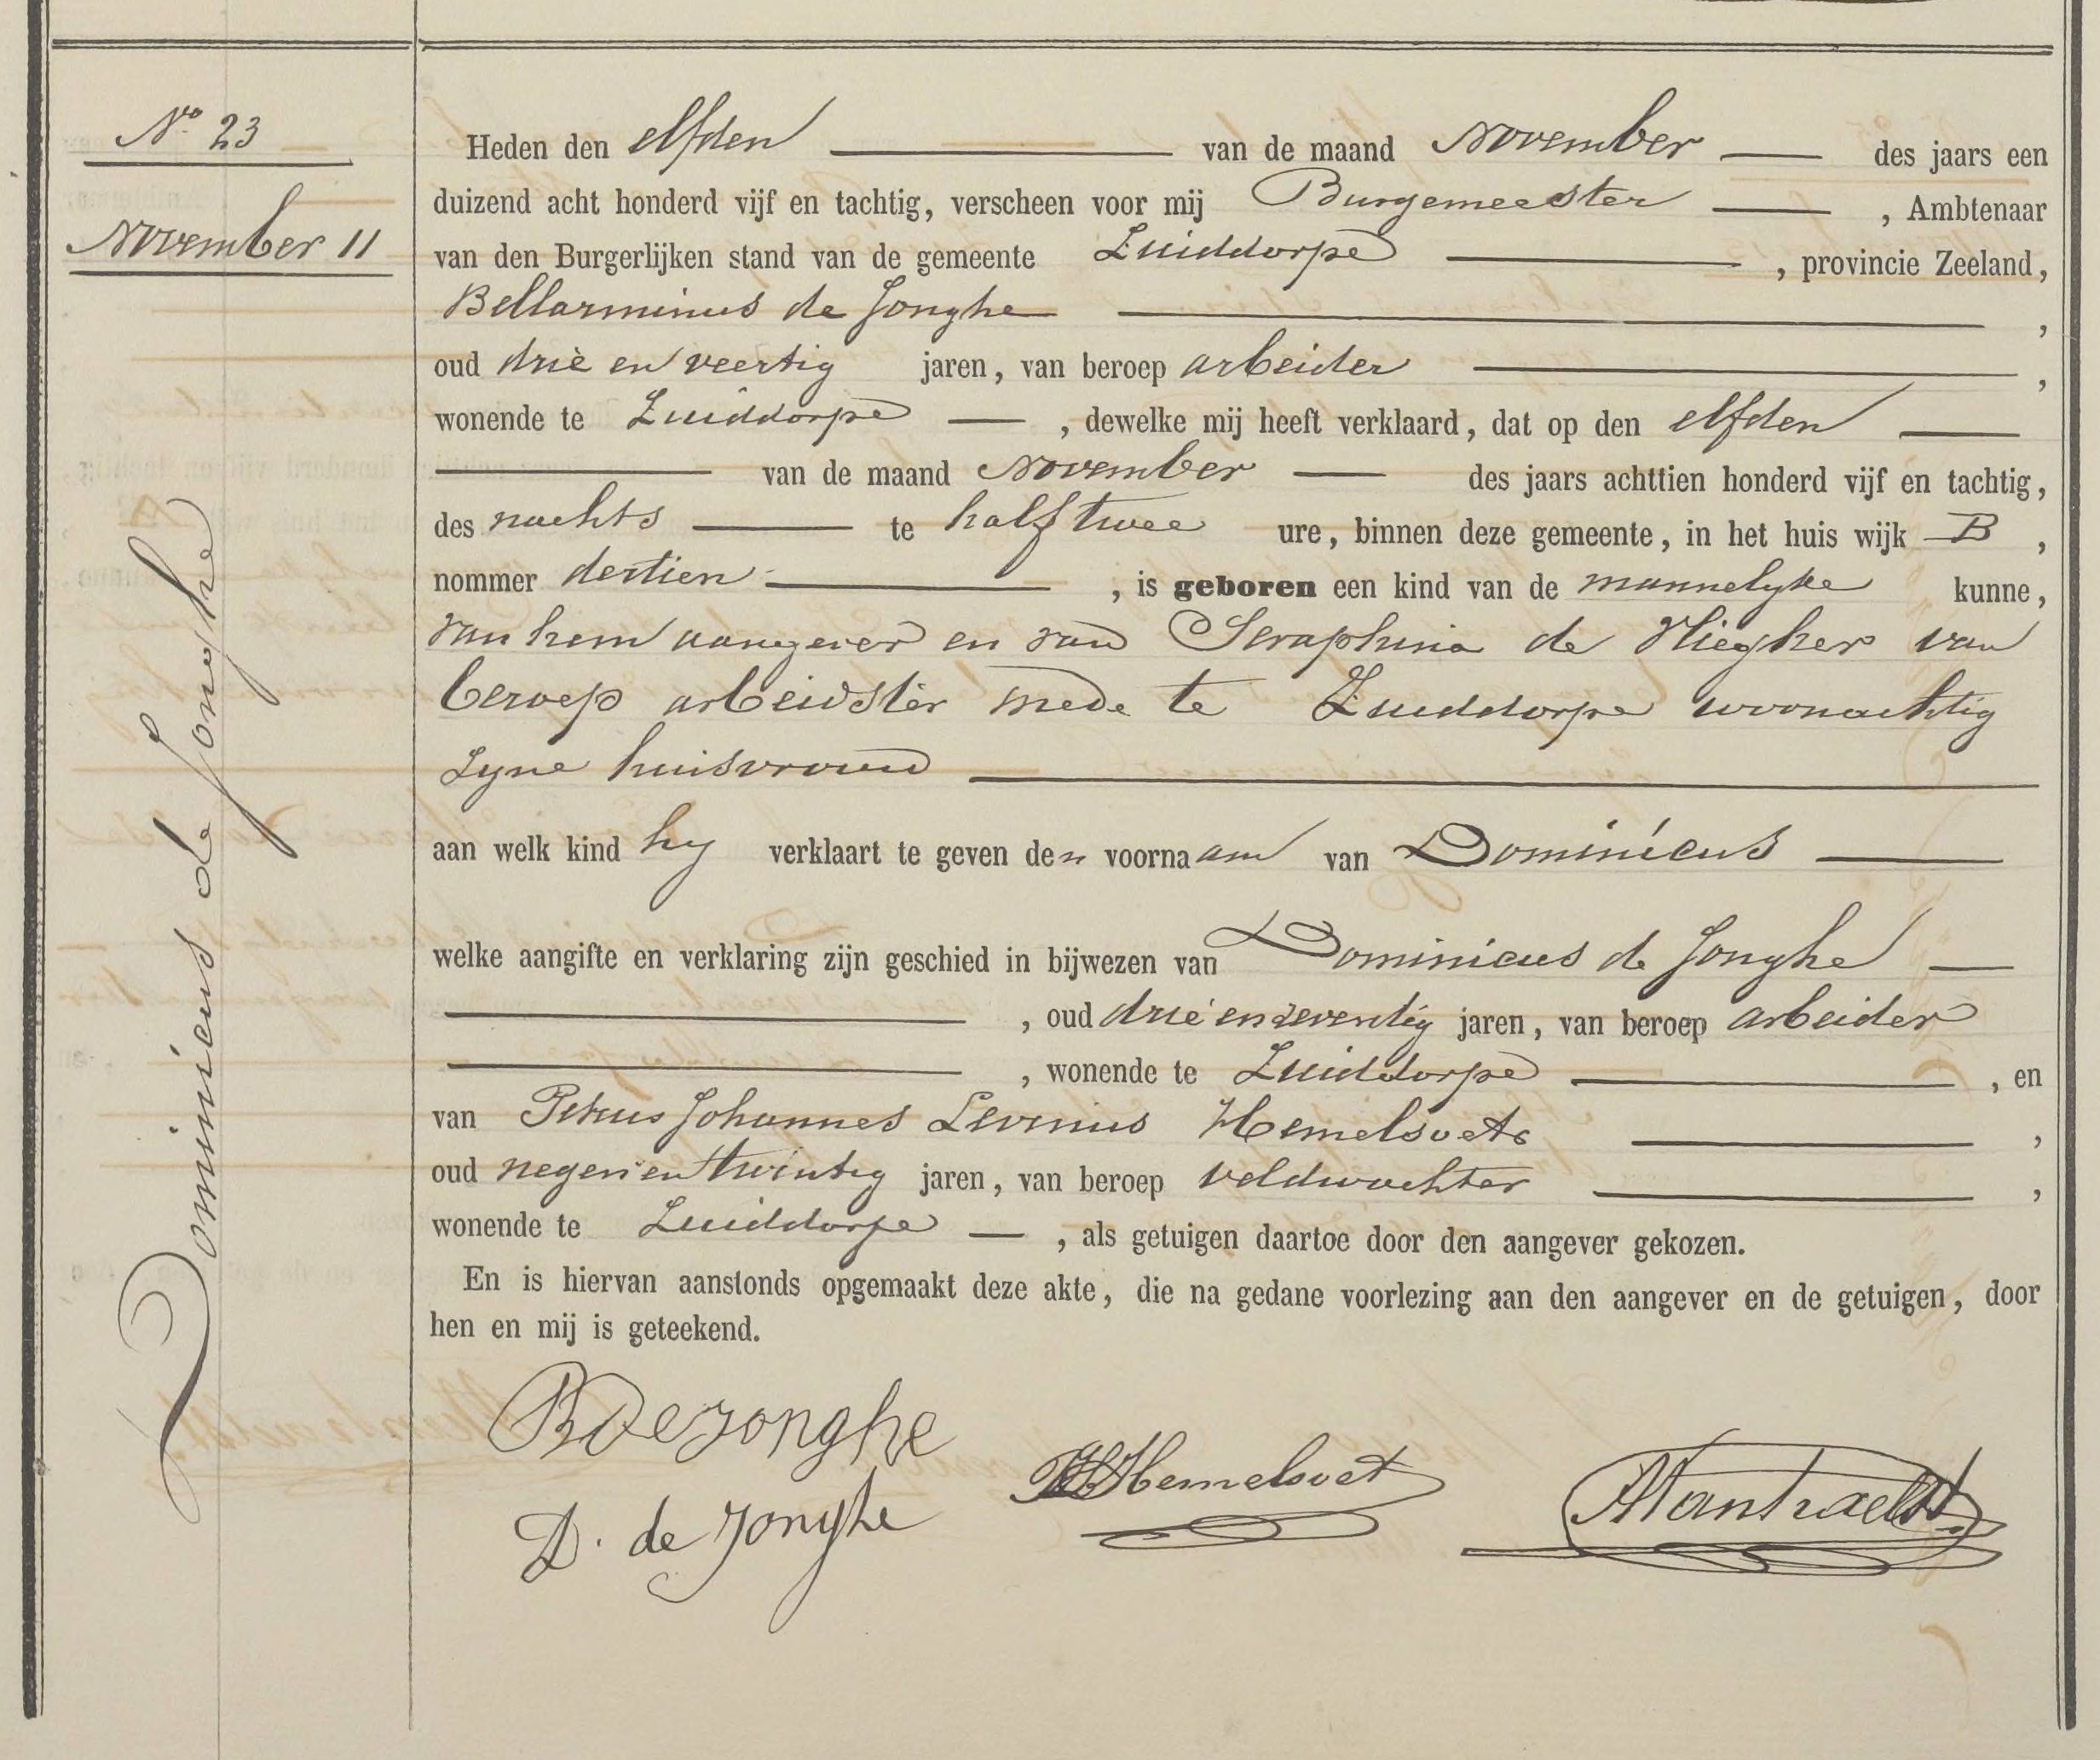 No 23
November 11
Dominicus de Jonghe
Heden den elfden van de maand November des jaars een
duizend acht honderd vijf en tachtig, verscheen voor mij Burgemeester , Ambtenaar
van den Burgerlijken stand van de gemeente Zuiddorpe , provincie Zeeland,
Bellarminus de Jonghe ,
oud drie en veertig jaren, van beroep arbeider ,
wonende te Zuiddorpe , dewelke mij heeft verklaard, dat op den elfden
van de maand November des jaars achttien honderd vijf en tachtig,
des nachts te half twee ure, binnen deze gemeente, in het huis wijk B ,
nommer dertien , is geboren een kind van de mannelyke kunne,
van hem aangever en van Seraphina de Vliegher van
beroep arbeidster mede te Zuiddorpe woonachtig
zyne huisvrouw
aan welk kind hy verklaart te geven den voornaam van Dominicus
welke aangifte en verklaring zijn geschied in bijwezen van Dominicus de Jonghe
, oud drie en zeventig jaren, van beroep arbeider
, wonende te Zuiddorpe , en
van Petrus Johannes Levinus Hemelsoet ,
oud negen en twintig jaren, van beroep veldwachter ,
wonende te Zuiddorpe , als getuigen daartoe door den aangever gekozen.
En is hiervan aanstonds opgemaakt deze akte, die na gedane voorlezing aan den aangever en de getuigen, door
hen en mij is geteekend.
B de Jonghe
Hemelsoet
D. de Jonghe